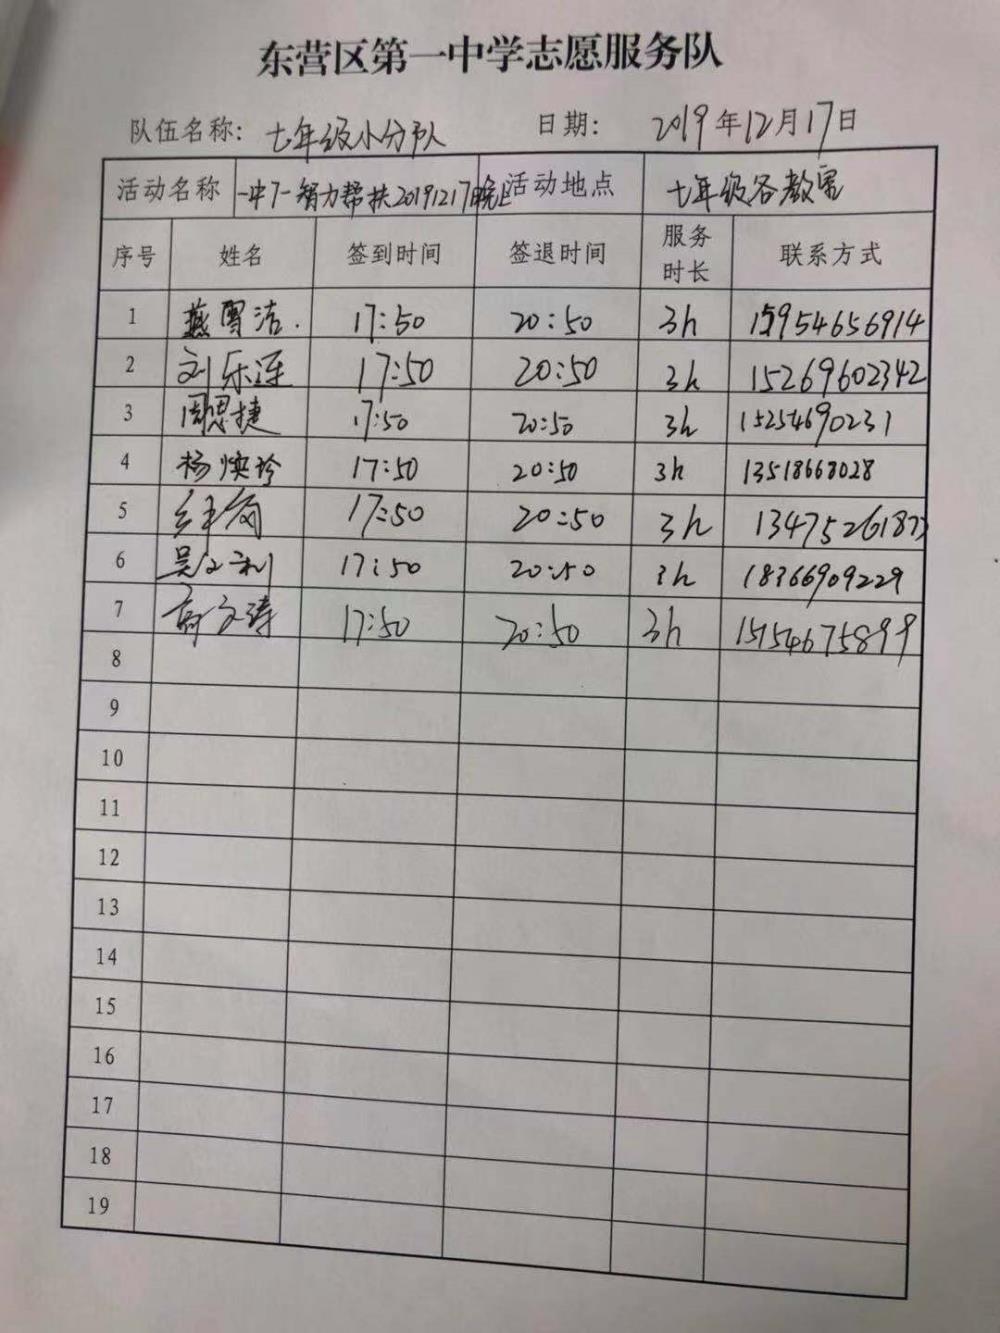 东营区第一中学志愿服务队
队伍名称: 七年级小分队 日期: 2019年12月17日
活动名称 一中7-智力帮扶20191217晚上 活动地点 七年级各教室
序号 姓名 签到时间 签退时间 服务时长 联系方式
1 燕雪洁. 17:50 20:50 3h 15954656914
2 刘乐莲 17:50 20:50 3h 15269602342
3 周思捷 17:50 20:50 3h 15254690231
4 杨焕珍 17:50 20:50 3h 13518668028
5 17:50 20:50 3h 13475261873
6 吴文利 17:50 20:50 3h 18366909229
7 文涛 17:50 20:50 3h
8
9
10
11
12
13
14
15
16
17
18
19